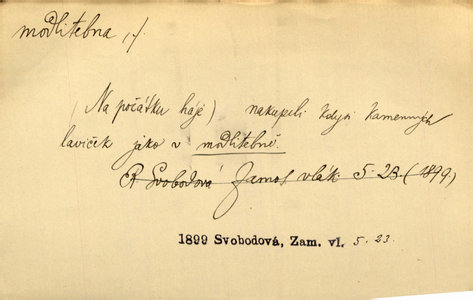 modlitebna, f.
(Na počátku háje) nakupili kdysi kamenných
laviček jako v modlitebně.
R Svobodová Zamotl vlák. 5. 23. (1899)
1899 Svobodová, Zam. vl. 5. 23.